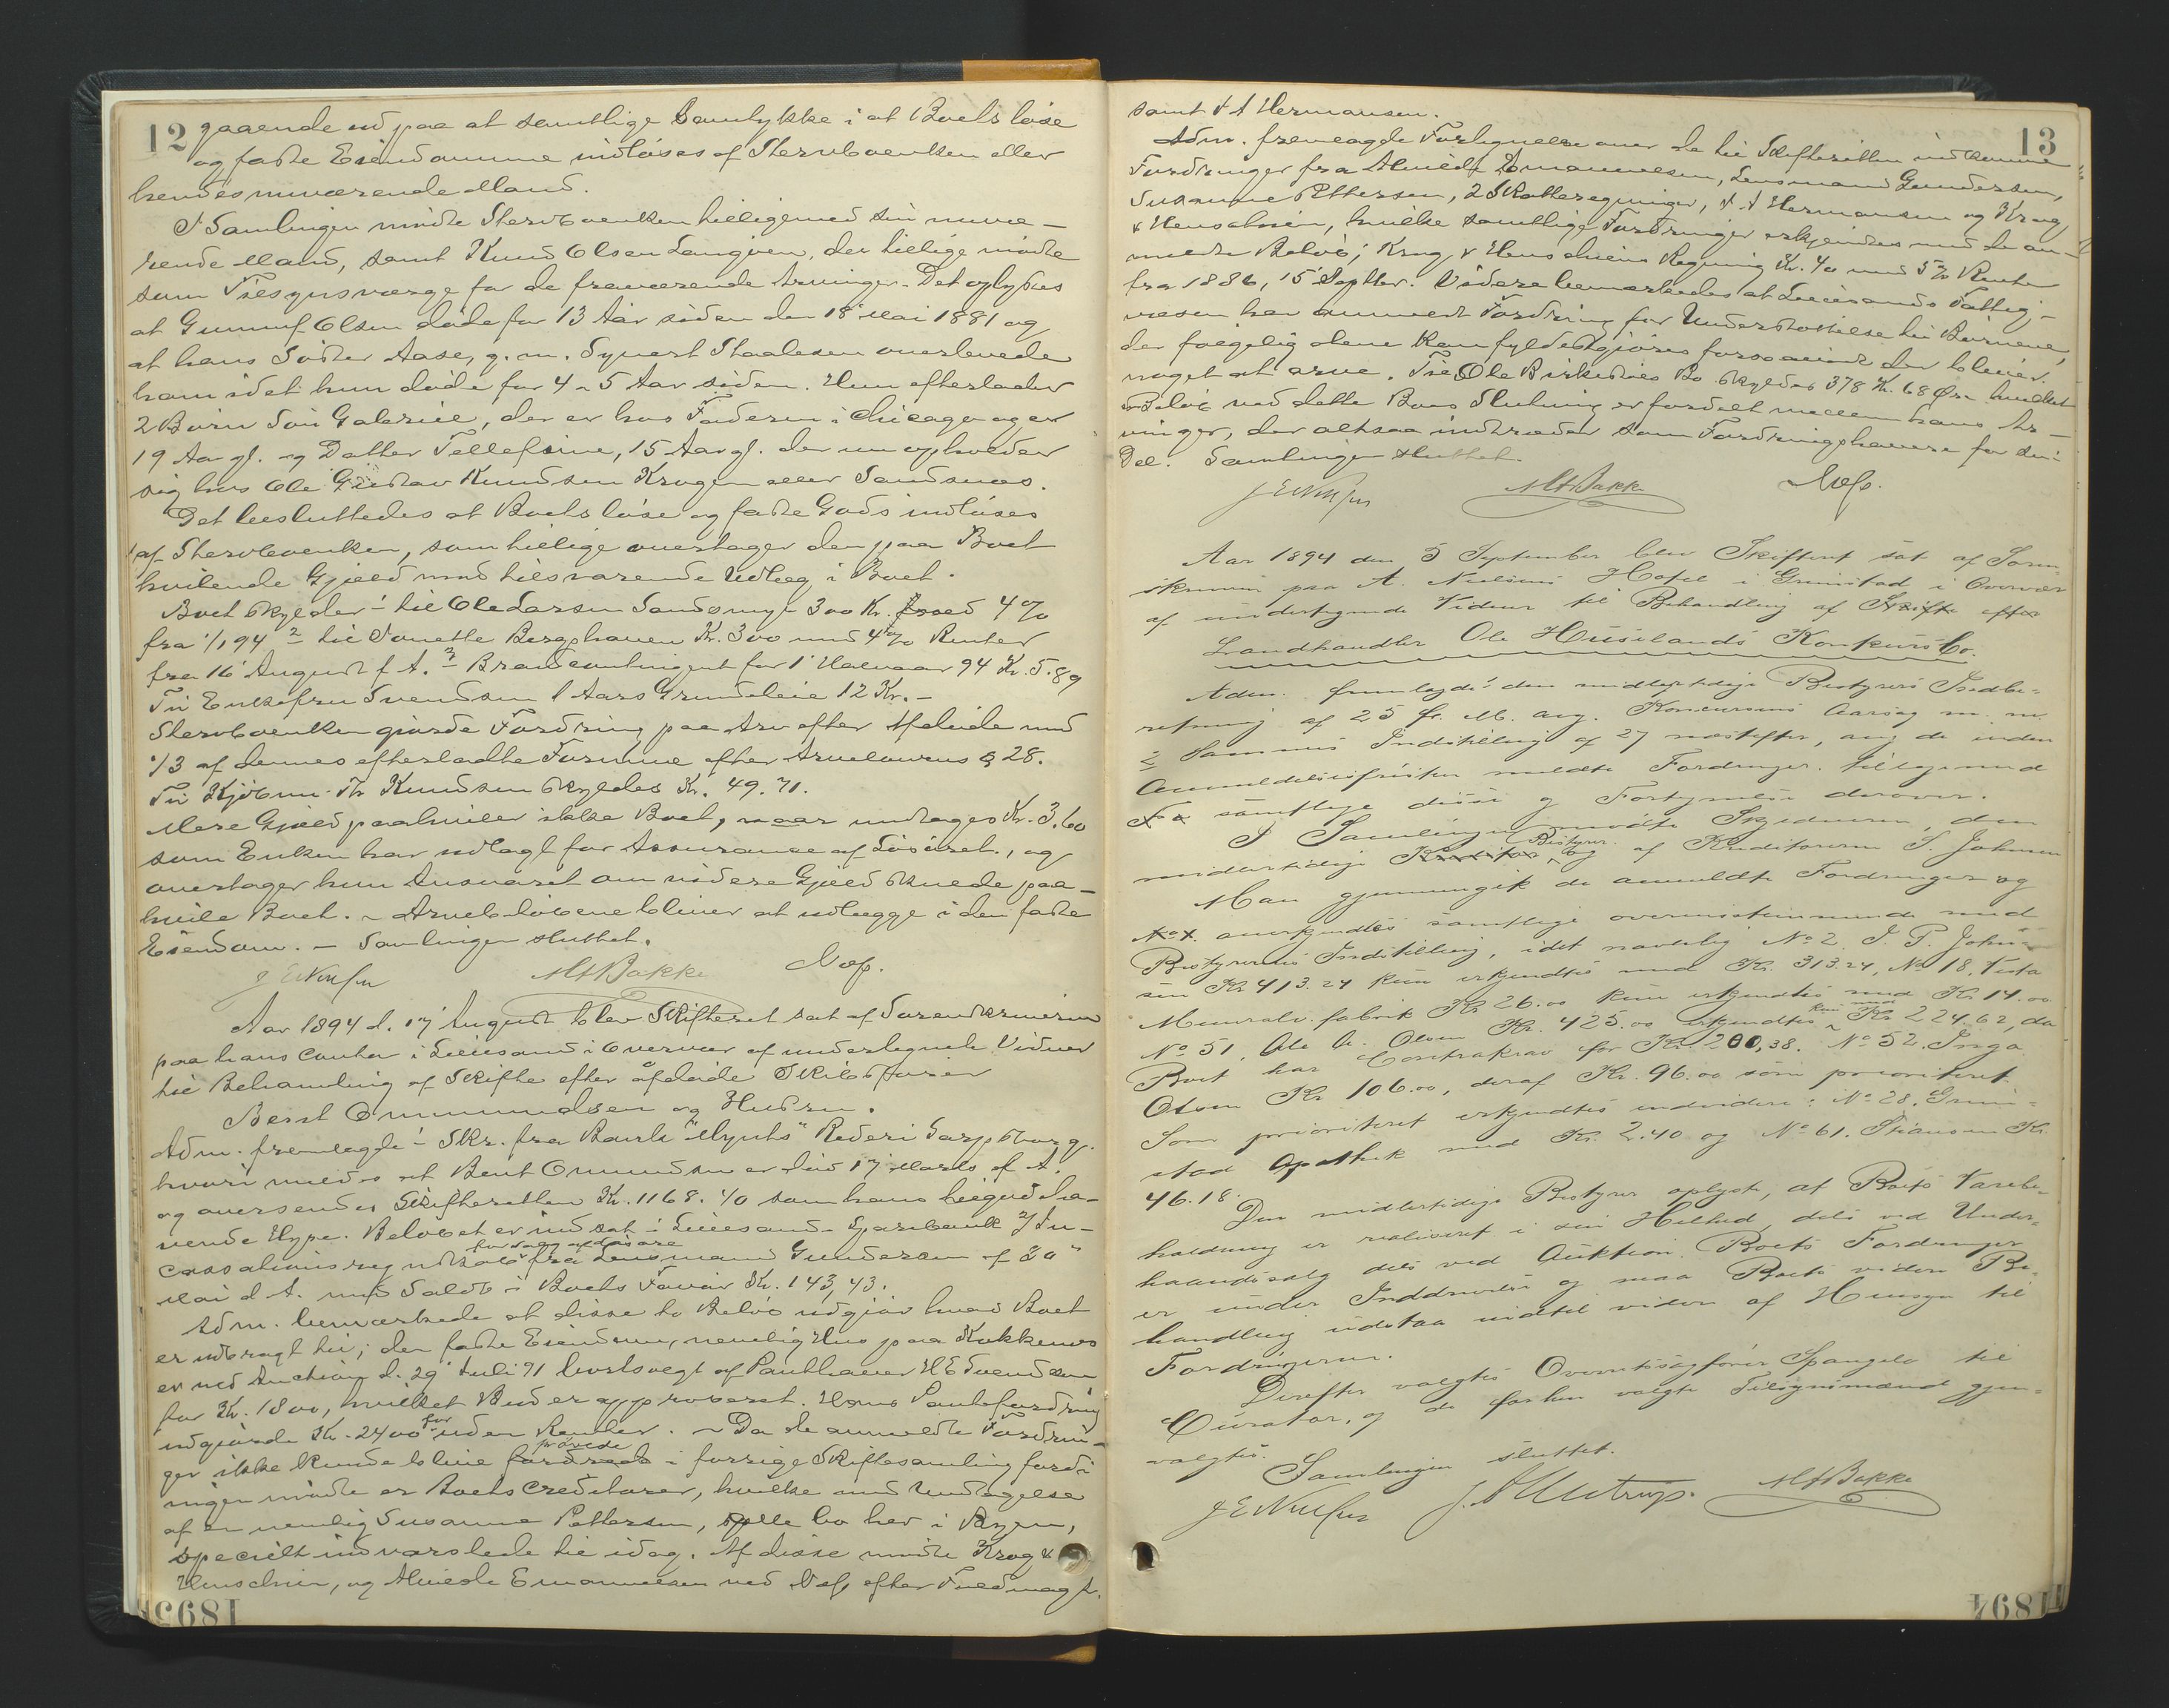 12 gaaende ud paa at samtlige Samtykke i at Boets løse
og faste Eiendomme indløses af Stervboenken eller
hendes nuværende Mand.
I Samlingen mødte Stervboenken tilligemed sin nuvæ-
rende Mand, samt Knud Olsen Langøen, der tillige mødte
som Tilsynsværge for de fraværende Arvinger. Det oplystes
at Gunuf Olsen døde for 13 Aar siden den 18 Mai 1881 og
at hans Søster Aase, g. m. Synert Staalesen overlevede
ham idet hun døde for 4 a 5 Aar siden. Hun efterlader
2 Børn Søn Gabriel, der er hos Faderen i Chicago og er
19 Aar gl. og Datter Tellefine, 15 Aar gl. der nu opholder
sig hos Ole Gustav Knudsen Kragen eller Sandsnæs.
Det besluttedes at Boets løse og faste Gods indløses
af Stervboenken, som tillige overtager den paa Boet
hvilende Gjæld mod tilsvarende Udlæg i Boet.
Boet skylder 1 til Ole Larsen Sandsmyr 300 Kr. med 4%
fra 1/1 94 2 til Jonette Bergshaven Kr. 300 med 4% Renter
fra 16 August f. A. 3 Brandcontingent for 1 Halvaar 94 Kr. 5.89
Til Enkefru Svendsen 1 Aars Grundleie 12 Kr. -
Stervboenken gjorde Fordring paa Arv efter Afdøde med
1/3 af dennes efterladte Formue efter Arvelovens § 28.
Til Kjøbm. Th Knudsen skyldes Kr. 49.71.
Mere Gjæld paahviler ikke Boet, naar undtages Kr. 3.60
som Enken har udlagt for Assurance af Løsøret, og
overtager hun Ansvaret om videre Gjæld skulde paa-
hvile Boet. - Arvelodderne bliver at udlægge i den faste
Eiendom. - Samlingen sluttet.
M A Bakke
Aar 1894 d. 17 August blev Skifteret sat af Sorenskriveren
paa hans Contor i Lillesand i Overvær af undertegnede Vidner
til Behandling af Skifte efter afdøde Skibsfører
Bernt Ommundsen og Hustru.
Adm. fremlagde 1 Skr. fra Bark "Mynts" Rederi Sarpsborg,
hvori meldes at Bent Ommundsen er død 17 Marts f. A.
og oversendes Skifteretten Kr. 1168.40 som hans tilgodeha-
vende Hyre. Beløbet er indsat i Lillesands Sparebank 2/ In-
cassationsregnskab for salg af løsøre fra Lensmand Gundersen af 30
Mai d. A. med Saldo i Boets Favør Kr. 143,43.
Adm. bemærkede at disse to Beløb udgjør hvad Boet
er indbragt til; den faste Eiendom, nemlig Hus paa Kokkenes
er ved Auction d. 29 Juli 91 bortsolgt af Panthaver H E Svendsen
for Kr. 1800, hvilket Bud er approberet. Hans Pantefordring
udgjorde Kr. 2400 for uden Renter. - Da de anmeldte Fordrin-
ger ikke kunde blive prøvede i forrige Skiftesamling fordi
ingen mødte er Boets Creditorer, hvilke med Undtagelse
af en nemlig Susanne Pettersen, alle bo her i Byen,
specielt indvarslede til idag. Af disse mødte Krog &
Henschien, og Alvilde Emanuelsen ved Næss efter Fuldmagt.
1895
13
samt A A Hermansen.
Adm. fremlagde Fortegnelse over de til Skifteretten indkomne
Fordringer fra Alvilde Emanuelsen, Lensmand Gundersen,
Susanne Pettersen, 2 Skatteregninger, A A Hermansen og Krog
& Henschien, hvilke samtlige Fordringer erkjendtes med de an-
meldte Beløb; Krog & Henschiens Regning Kr. 40 med 5% Renter
fra 1886, 15 Septbr. Videre bemærkedes at Lillesands Fattig-
væsen har anmeldt Fordring for Understøttelse til Børnene,
der følgelig alene kan fyldestgjøres forsaavidt der bliver
noget at arve. Til Ole Birkedals Bo skyldes 378 Kr. 68 Øre hvilket
Beløb ved dette Boes Slutning er fordelt mellem hans Ar-
vinger, der altsaa indtræder som Fordringshavere for sin
Del. Samlingen sluttet.
M A Bakke
Aar 1894 den 5 September blev Skifteret sat af Soren-
skriveren paa A. Nielsens Hotel i Grimstad i Overvær
af undertegnede Vidner til Behandling af Skifte efter
Landhandler Ole Huselands Konkursbo.
Adm. fremlagde 1 den midlertidige Bestyrers Indbe-
retning af 25 f. M. ang. Konkursens Aarsag m. m.
2 Sammes Indstilling af 27 næstefter, ang de inden
Anmeldelsesfristen meldte Fordringer. tilligemed
samtlige disse og Fortegnelse derover.
I Samlingen mødte Skyldneren, den
midlertidige Bestyrer og af Kreditorerne S. Johnsen
Man gjennemgik de anmeldte Fordringer og
anerkjendtes samtlige overensstemmende med
Bestyrerens Indstilling, idet navnlig No 2 J. P. John-
sen Kr 413.24 kun erkjendtes med Kr. 313.24, No 18. Vesta
Mineralv. fabrik Kr 26.00 kun erkjendtes med Kr. 14.00
No 51, Ole A. Olsen Kr. 425.00 erkjendtes kun med Kr 224.62, da
Boet har Contrakrav for Kr. 200,38. No 52. Inga
Olsen Kr 106.00, deraf Kr. 96.00 som prioriteret.
Som prioriteret erkjendtes endvidere: No 28. Grim-
stad Apothek med Kr. 2.40 og No 61. Stiansen Kr.
46.18.
Den midlertidige Bestyrer oplyste, at Boets Varebe-
holdning er realiseret i sin Helhed, dels ved Under-
haandssalg dels ved Auktion. Boets Fordringer
er under Inddrivelse og maa Boets videre Be-
handling udstaa indtil videre af Hensyn til
Fordringerne.
Derefter valgtes Overretssagfører Spangelo til
Curator, og de forhen valgte Tilsynsmænd gjen-
valgtes.
Samlingen sluttet.
M A Bakke
1894